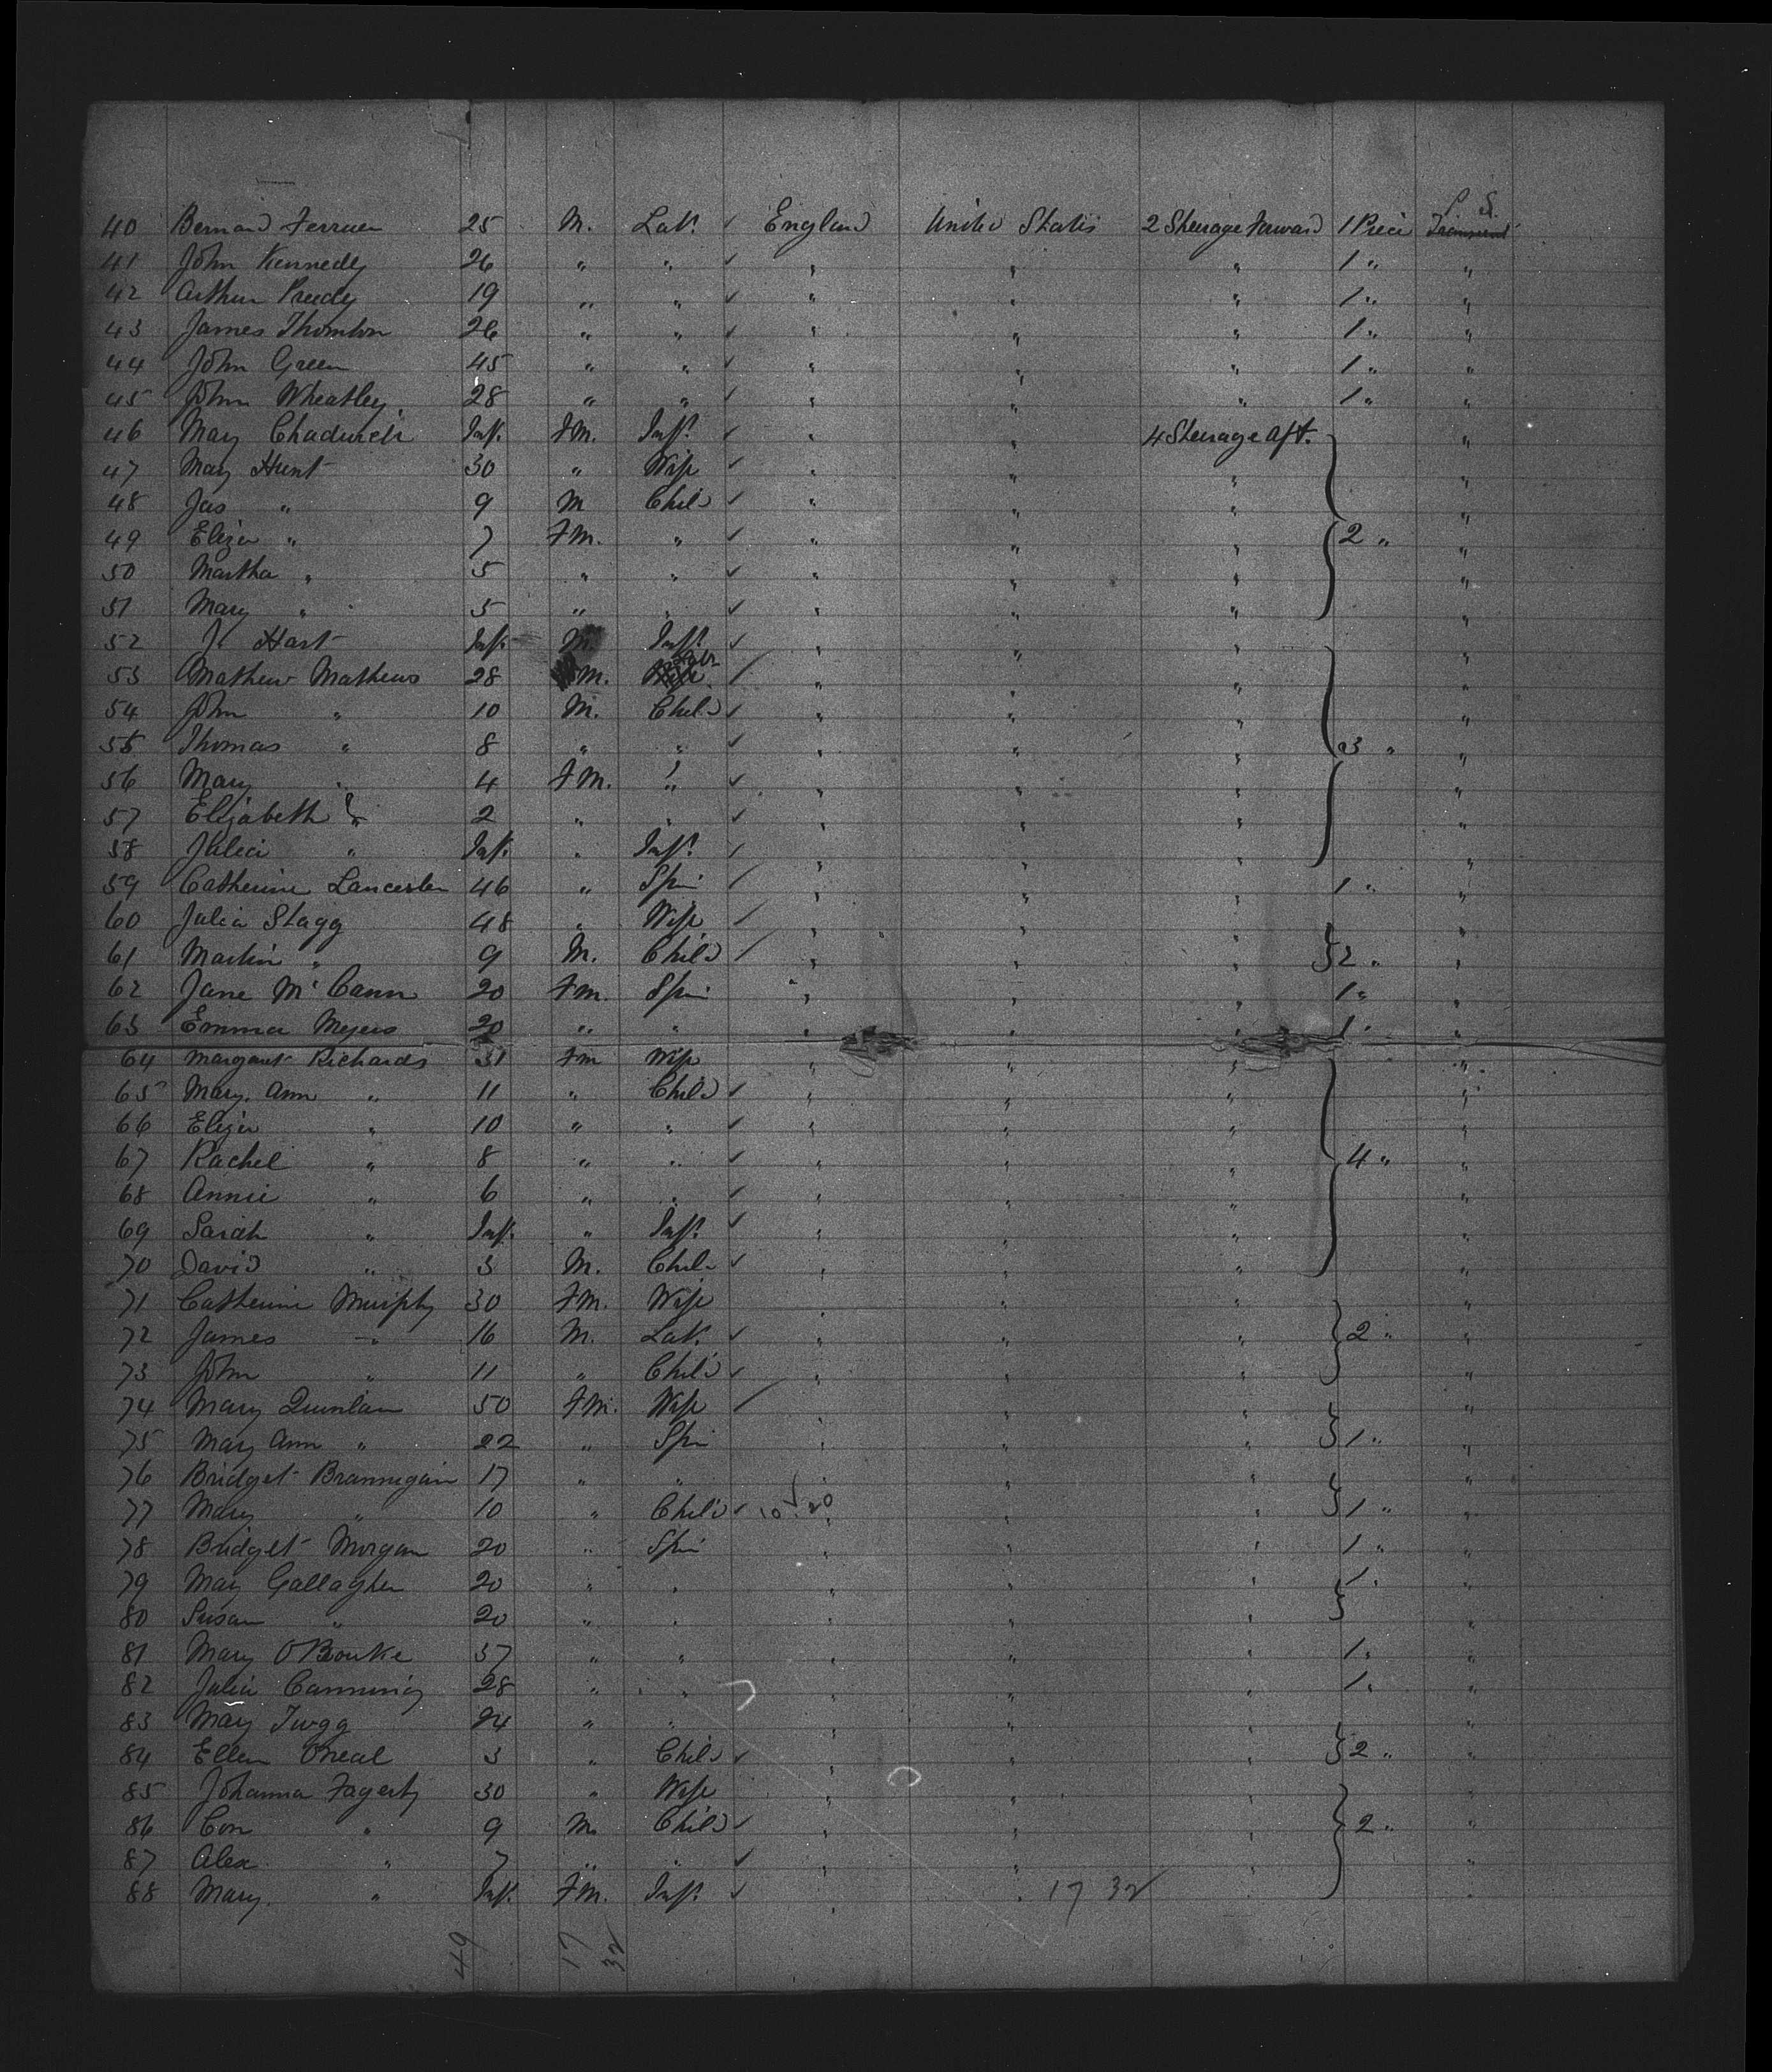 P. S.
40 Bernard 25 M. Lab. ✓ England United States 2 Steerage Forward 1 Piece Transient
41 John Kennedy 26 " " ✓ " " " 1 " "
42 Arthur Preedy 19 " " ✓ " " " 1 " "
43 James Thornton 26 " " ✓ " " " 1 " "
44 John Green 45 " " ✓ " " " 1 " "
45 John Wheatley 28 " " ✓ " " " 1 " "
46 Mary Chadwick Inf. FM. Inft. ✓ " " 4 Steerage aft. "
47 Mary Hunt 30 " Wife ✓ " " " "
48 Jas " 9 M Child ✓ " " " "
49 Eliza " 7 FM. " ✓ " " " 2 " "
50 Martha " 5 " " ✓ " " " "
51 Mary " 5 " " ✓ " " " "
52 J. Hart Inf. M. Inft. ✓ " " " "
53 Mathew Mathews 28 M. ✓ " " " "
54 John " 10 M. Child ✓ " " " "
55 Thomas " 8 " " ✓ " " " 3 " "
56 Mary " 4 FM. " ✓ " " " "
57 Elizabeth " 2 " " ✓ " " " "
58 Julia " Inf. " Inft. ✓ " " " "
59 Catherine Lancaster 46 " Spin ✓ " " " 1 " "
60 Julia Stagg 48 " Wife ✓ " " " "
61 Martin " 9 M. Child ✓ " " " 2 " "
62 Jane McCann 20 FM. Spin " " " 1 " "
63 Emma Myers 20 " " " " " 1 " "
64 Margaret Richards 31 FM Wife " " " "
65 Mary Ann " 11 " Child ✓ " " " "
66 Eliza " 10 " " ✓ " " " "
67 Rachel " 8 " " ✓ " " " 4 " "
68 Annie " 6 " " ✓ " " " "
69 Sarah " Inf. " Inft. ✓ " " " "
70 David " 3 M. Child ✓ " " " "
71 Catherine Murphy 30 FM. Wife " " " "
72 James " 16 M. Lab. ✓ " " " 2 " "
73 John " 11 " Child ✓ " " " "
74 Mary Quinlan 50 FM. Wife ✓ " " " "
75 Mary Ann " 22 " Spin " " " 1 " "
76 Bridget Brannigan 17 " " " " " "
77 Mary " 10 " Child ✓ 10 ✓ 20 " " " 1 " "
78 Bridget Morgan 20 " Spin " " " 1 " "
79 Mary Gallagher 20 " " " " " 1 " "
80 Susan " 20 " " " " " "
81 Mary O'Rourke 37 " " " " " 1 " "
82 Julia Canning 28 " " " " " 1 " "
83 Mary Twigg 24 " " " " " "
84 Ellen O'Neal 3 " Child ✓ " " " 2 " "
85 Johanna Fagerty 30 " Wife " " " "
86 Con " 9 M. Child ✓ " " " 2 " "
87 Alex " 7 " " ✓ " " " "
88 Mary " Inf. FM. Inft. ✓ " " 17 32 " "
49 17 32